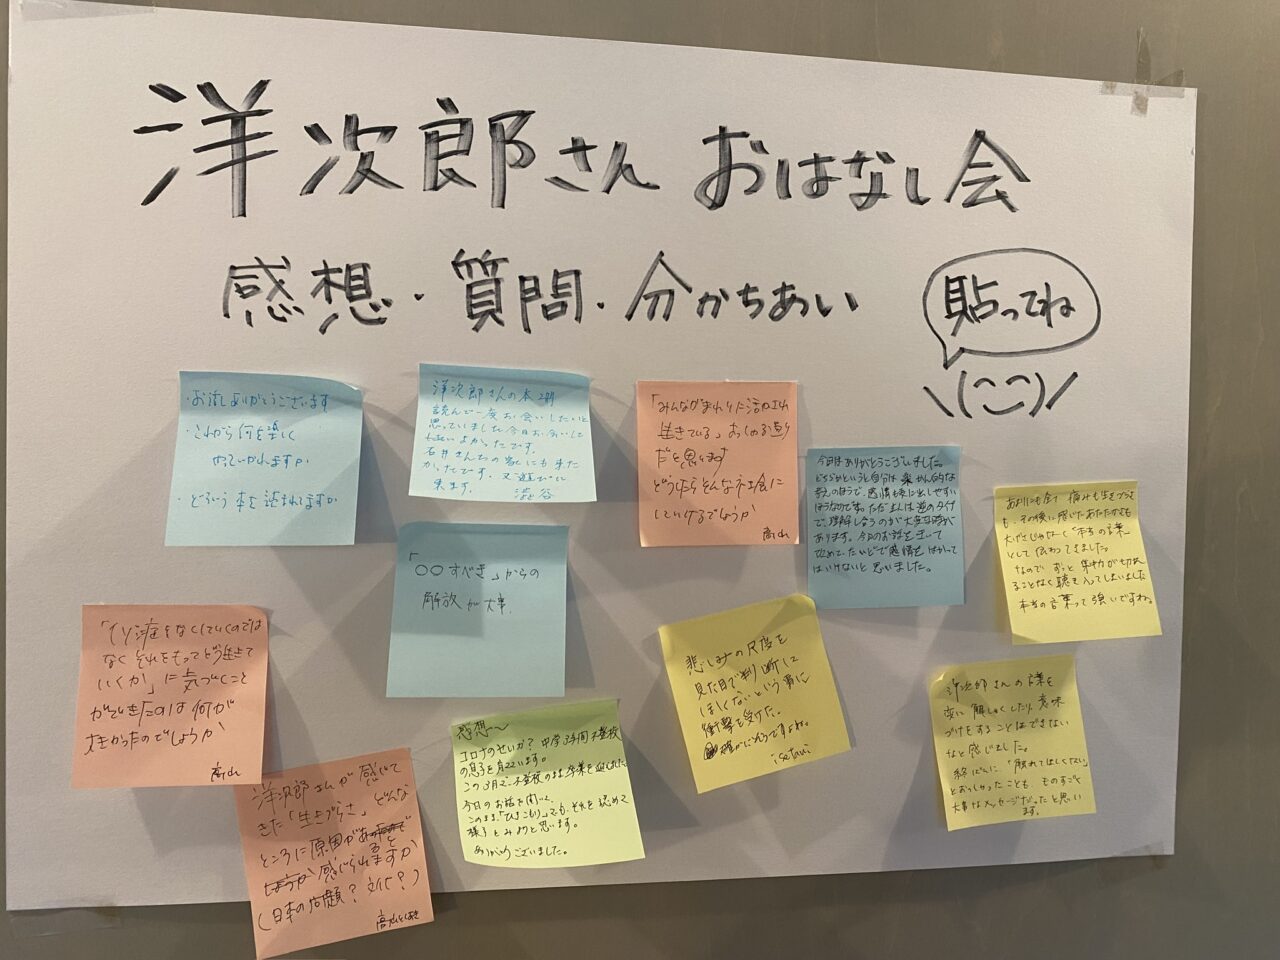 洋次郎さん おはなし会
感想・質問・分かちあい
貼ってね
・お話しありがとうございます
・これから何を楽しく
やっていかれますか
・どういう本を読まれてますか
洋次郎さんの本2冊
読んで一度お会いしたいと
思っていました今日お会いして
とてもよかったです。
石井さんちの家にも来た
かったです。又遊びに
来ます。 渋谷
「みんながまわりに活かされ
生きている」おっしゃる通り
だと思います
どうしたらそんな社会に
していけるでしょうか
高山
今日はありがとうございました。
どちらかというと自分は楽かん的な
考えのほうで、感情も表に出しやすい
ほうなのです。ただ主人は逆のタイプ
で、理解し合うのが大変な時が
あります。今日のお話を生いて
改めて、たいどで感情をはかって
はいけないと思いました。
あまりにも全て痛みも生きづらさ
も、その後に感じたあたたかさも
大げさじゃなく"本当の言葉"
として伝わってきました。
なので ずっと集中力が切れ
ることなく聴き入ってしまいました
本当の言葉って強いですね。
「○○すべき」からの
解放が大事.
をなくしていくのでは
なくそれをもってどう生きて
いくか」に気づくこと
ができたのは何が
大きかったのでしょうか
高山
悲しみの尺度を
見た目で判断して
ほしくないという事に
衝撃を受けた。
確かにそうですよね。
洋次郎さんの言葉を
変に解しゃくしたり、意味
づけをすることはできない
なと感じました。
「触れてほしくない」
とおっしゃったことも、ものすごく
大事なメッセージだったと思い
ます。
感想〜
コロナのせいか? 中学3年間不登校
の息子を
この3月で不登校のまま卒業を
今日のお話を聞いて、
このまま「ひきこもり」でも、それを認めて
様子をみようと思います。
ありがとうございました。
洋次郎さんが感じて
きた「生きづらさ」どんな
ところに原因があると
感じられますか
(日本の問題? 文化?)